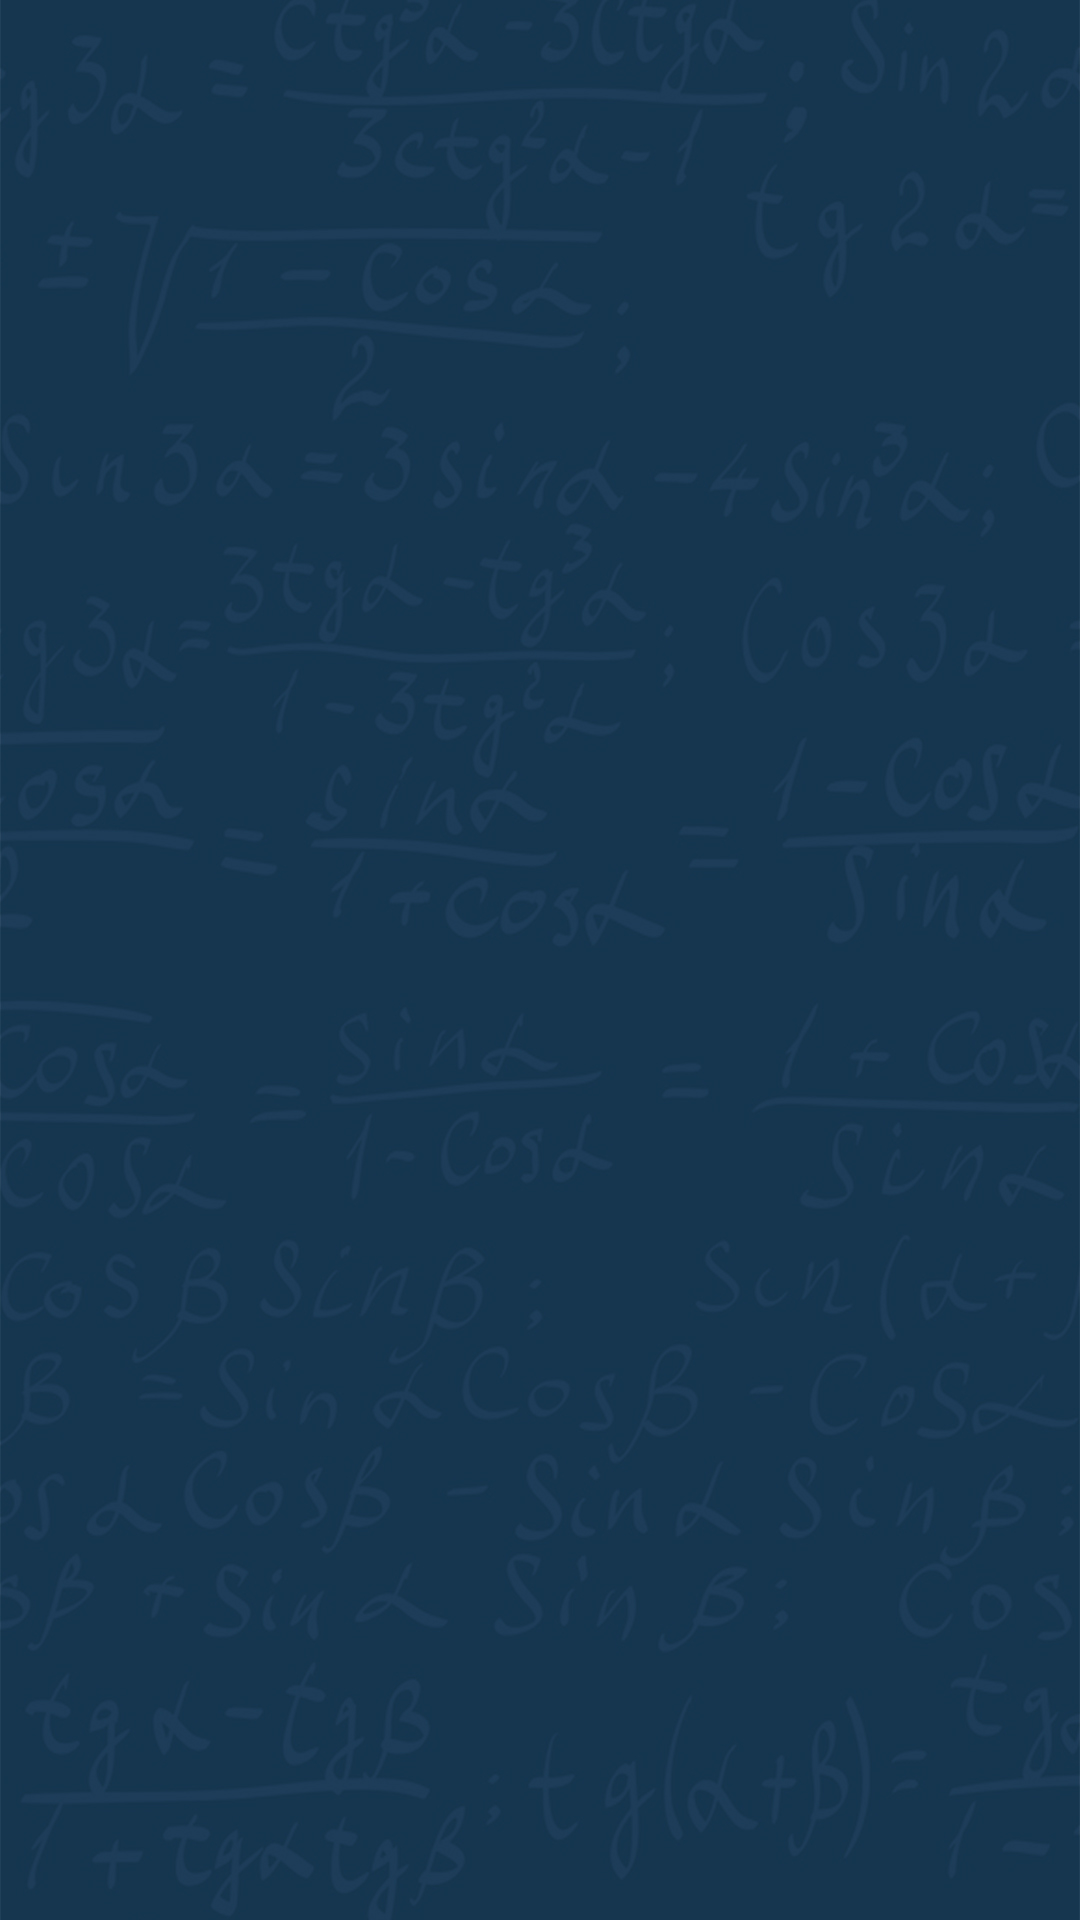 g 3α = ctg³α - 3ctgα ; Sin 2α
3ctg²α - 1
tg 2α =
± √ 1 - Cosα ;
2
Sin 3α = 3 sinα - 4 Sin³α; C
g 3α = 3tgα - tg³α ; Cos 3α =
1 - 3tg²α
osα = sinα = 1 - Cosα
2 1 + Cosα Sinα
Cosα = Sinα = 1 + Cosα
Cosα 1 - Cosα Sinα
Cos β Sin β ; Sin (α +
β = Sin α Cos β - Cosα
os α Cos β - Sin α Sin β ;
sβ + Sin α Sin β ; Cos
tg α - tg β ; tg (α + β) = tgα
1 + tgα tgβ 1 -